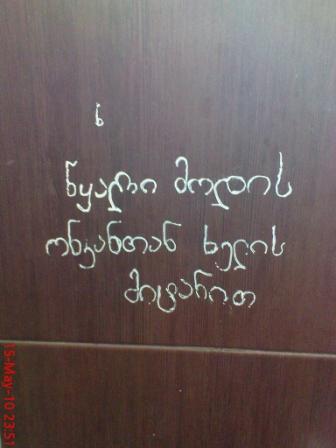 ს
წყალი მოდის
ონკანთან ხელის
მიტანით
15-May-10 23:51